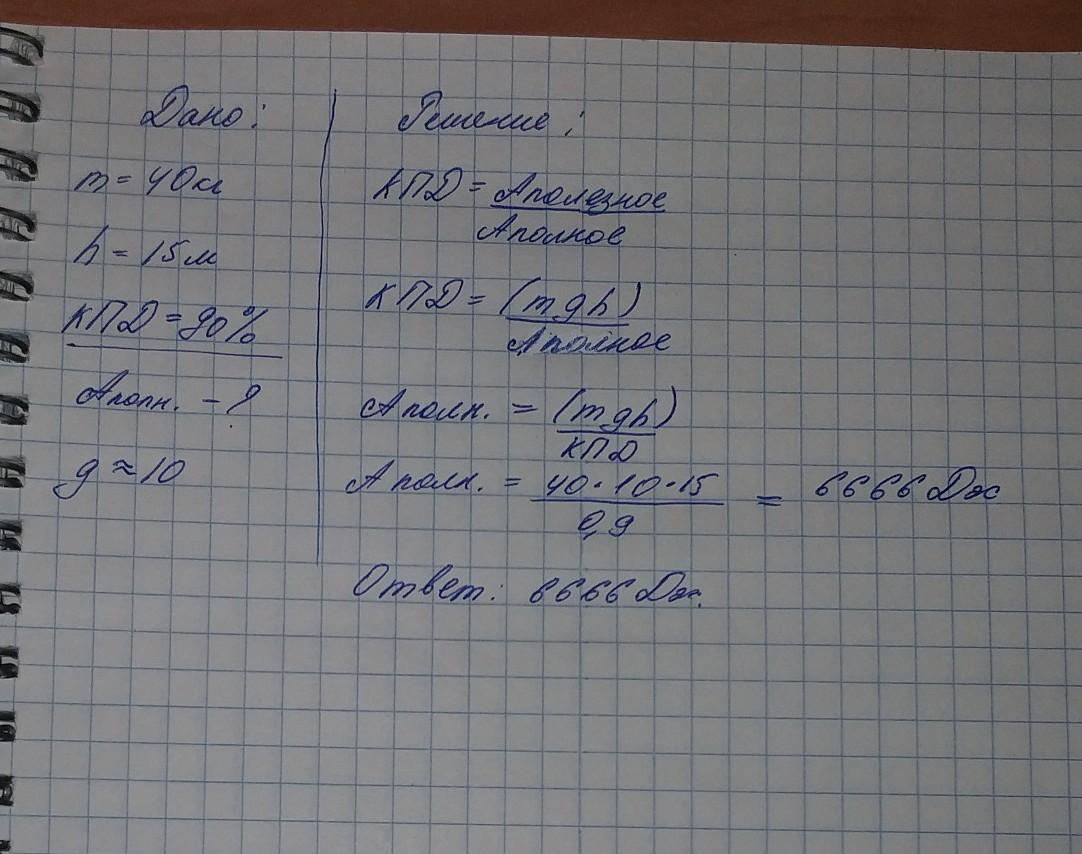 Дано:
m = 40кг
h = 15м
КПД = 90%
Аполн. - ?
g ≈ 10
Решение:
КПД = Аполезное
Аполное
КПД = (mgh)
Аполное
Аполн. = (mgh)
КПД
Аполн. = 40·10·15 = 6666 Дж
0,9
Ответ: 6666 Дж.